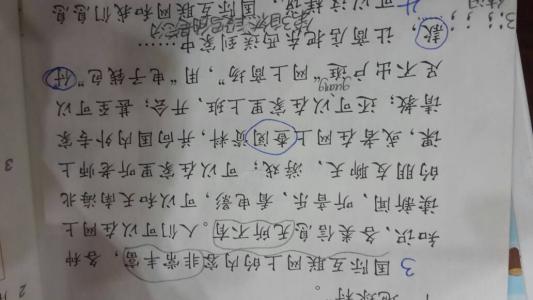 地球村。
3 国际互联网上的内容非常丰富，各种
知识、各类信息无所不有。人们可以在网上
读新闻、听音乐、看电影，可以和天南海北
的朋友聊天、游戏；可以在家里听老师上
课，或者在网上查阅资料，并向国内外专家
请教；还可以在家里上班、开会；甚至可以
guang
足不出户逛“网上商场”，用“电子钱包”付
款，让商店把东西送到家中……
可以这样说，国际互联网和我们息息
2
3